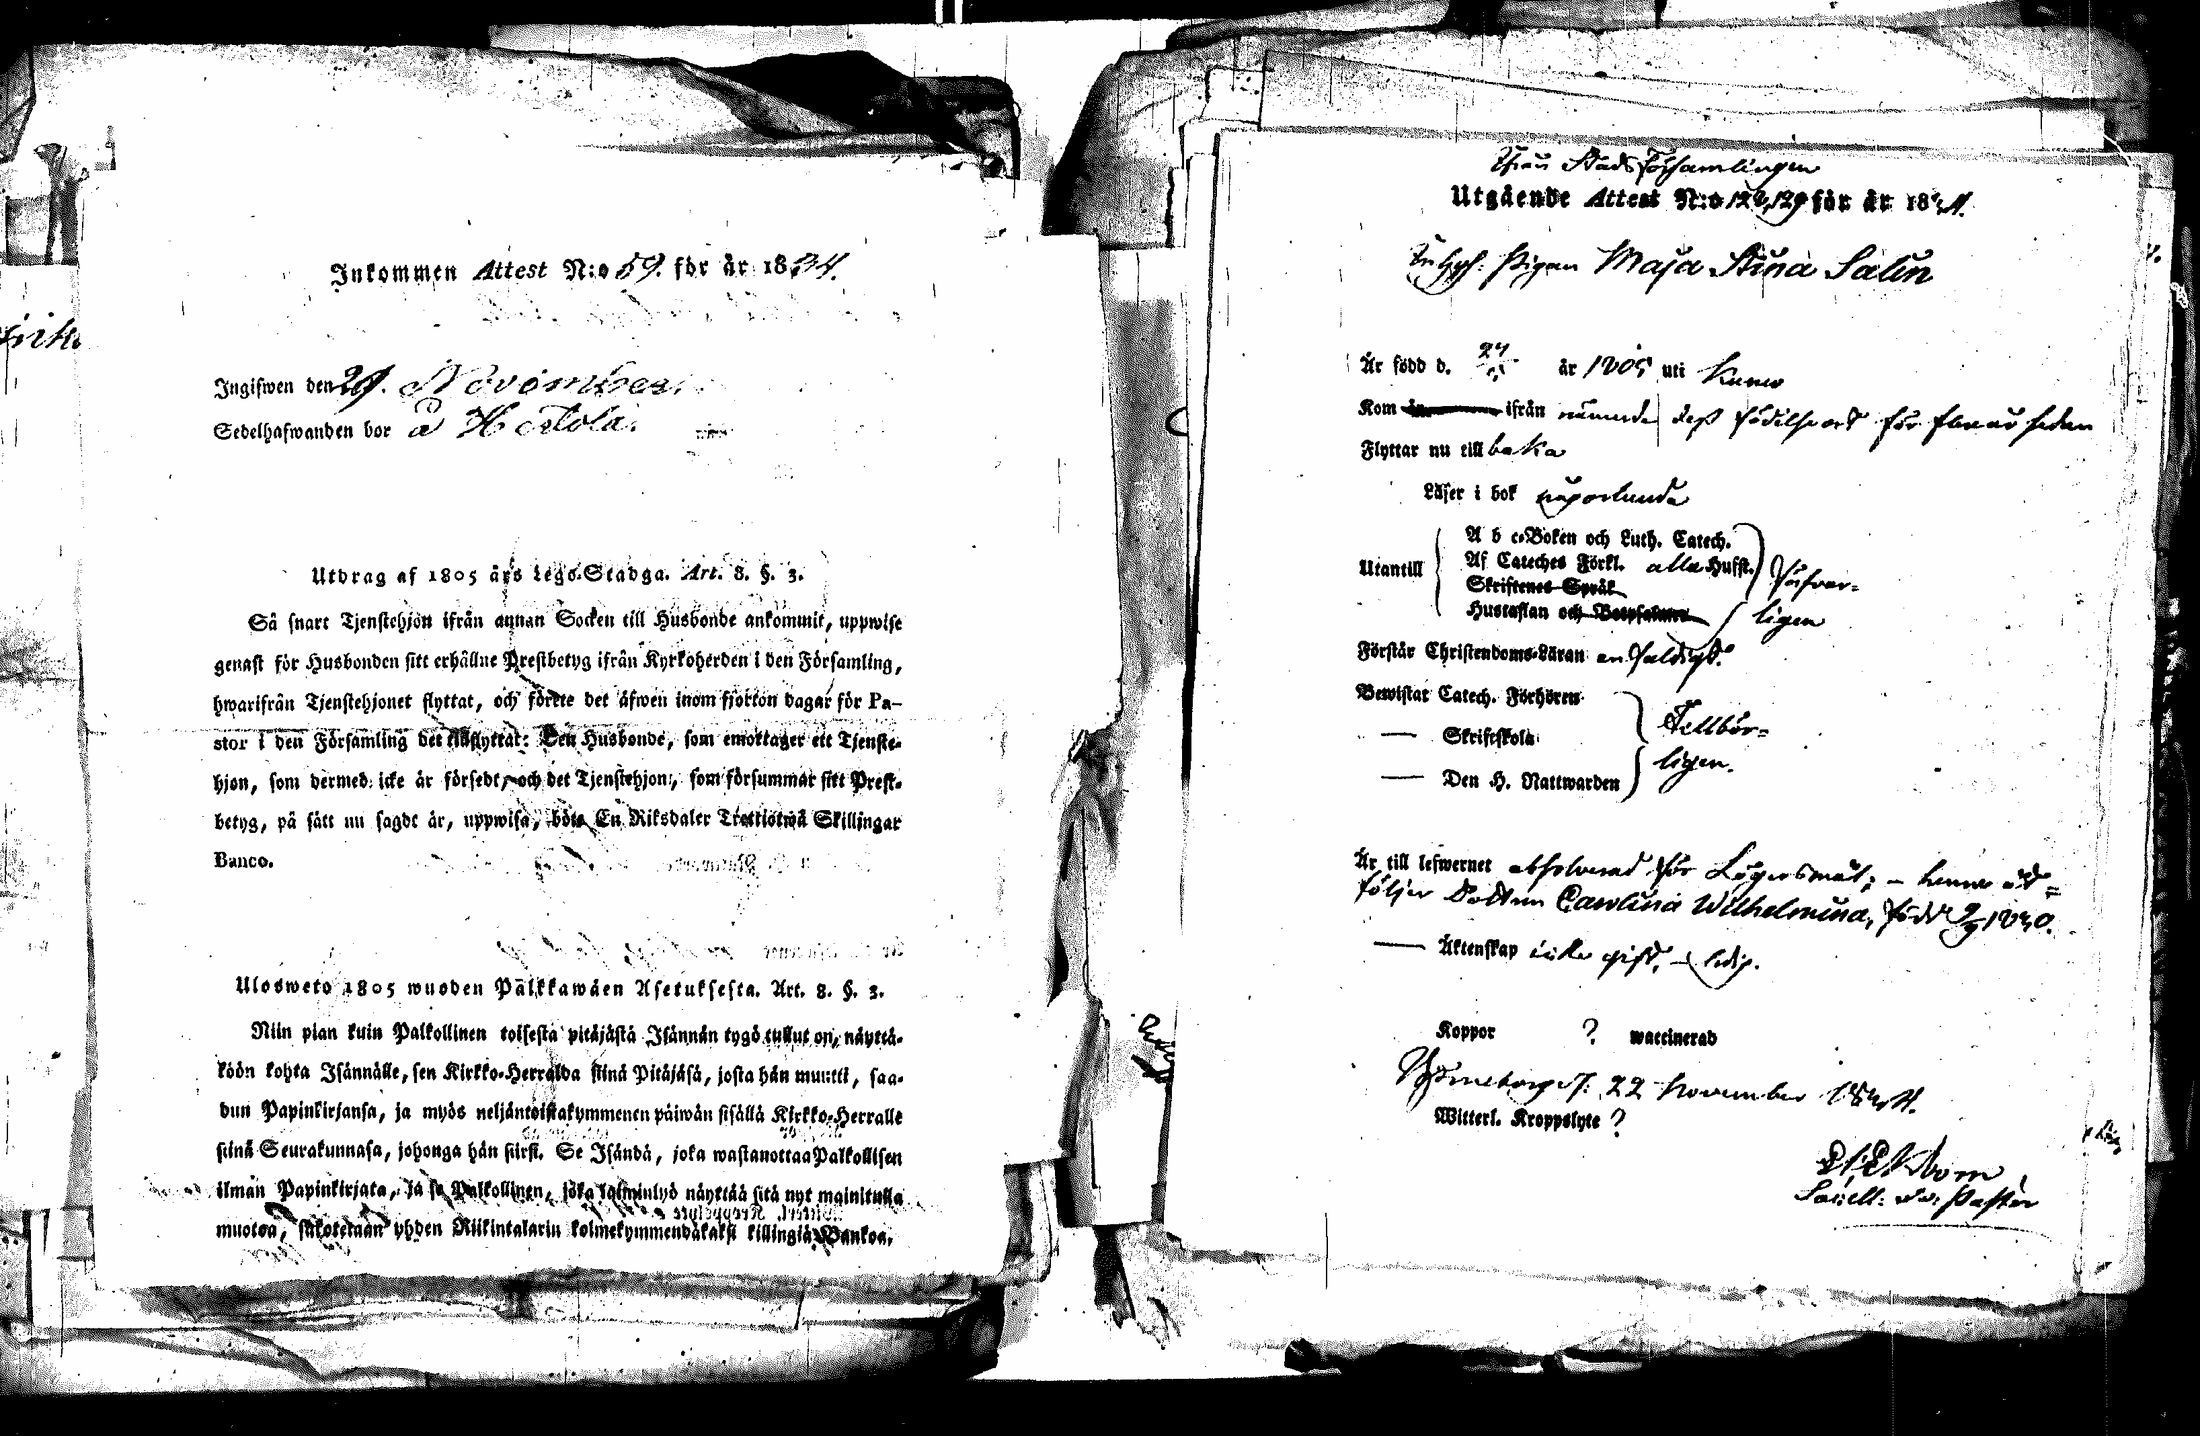 Inkommen Attest N:o 59. för år 1834.
Ingifwen den 29. November.
Sedelhafwanden bor å Hertola.
Utdrag af 1805 års Lego-Stadga. Art. 8. §. 3.
Så snart Tjenstehjon ifrån annan Socken till Husbonde ankommit, uppwise
genast för Husbonden sitt erhållne Prestbetyg ifrån Kyrkoherden i den Församling,
hwarifrån Tjenstehjonet flyttat, och förete det äfwen inom fjorton dagar för Pa-
stor i den Församling det tillflyttat: Den Husbonde, som emottager ett Tjenste-
hjon, som dermed icke är försedt, och det Tjenstehjon, som försummar sitt Prest-
betyg, på sätt nu sagdt är, uppwisa, böte En Riksdaler Trettiotwå Skillingar
Banco.
Ulosweto 1805 wuoden Palkkawäen Asetuksesta. Art. 8. §. 3.
Niin pian kuin Palkollinen toisesta pitäjästä Isännän tygö tullut on, näyttä-
köön kohta Isännälle, sen Kirkko-Herralda siinä Pitäjäsä, josta hän muutti, saa-
dun Papinkirjansa, ja myös neljäntoistakymmenen päiwän sisällä Kirkko-Herralle
siinä Seurakunnasa, johonga hän siirsi. Se Isändä, joka wastanottaa Palkollisen
ilman Papinkirjata, ja se Palkollinen, joka laiminlyö näyttää sitä nyt mainitulla
muotoa, sakotetaan yhden Riikintalarin kolmekymmendäkaksi killingiä Bankoa.
Stads församlingen
Utgående Attest N:o 128, 129 för år 1834.
Pigan Maja Stina Salin
Är född d. 24 år 1805 uti Kumo
Kom ifrån nämnde dess födelseort för flera år sedan
Flyttar nu till baka
Läser i bok
Utantill
A b c-Boken och Luth. Catech.
Af Cateches Förkl. alla Hufst.
Skriftenes Språk
Hustaflan och Botpsalmer
försvar-
ligen
Förstår Christendoms-Läran enfaldigt.
Bewistat Catech. Förhören
— Skriftskola
— Den H. Nattwarden
Tillbör-
ligen.
Är till lefwernet absolverad för Lägersmål; – henne åt-
följer Dottren Carolina Wilhelmina, född 2/9 1830.
— Äktenskap icke gift, – ledig.
Koppor ? waccinerad
Björneborg d. 22 November 1834.
Witterl. Kroppslyte ?
Ekbom
Pastor